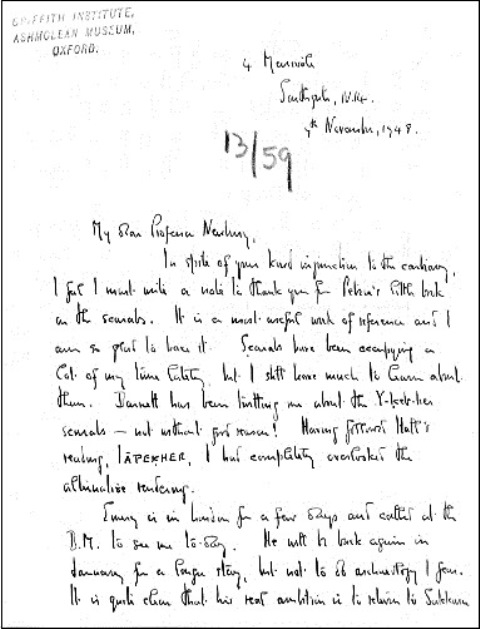 GRIFFITH INSTITUTE,
ASHMOLEAN MUSEUM,
OXFORD.
4
Southgate, N.14.
9th November, 1948.
13/59
My dear Professor Newberry,
In spite of your kind injunction to the contrary,
I feel I must write a note to thank you for Petrie's little book
on the scarabs. It is a most useful work of reference and I
am so glad to have it. Scarabs have been occupying a
lot of my time lately, but I still have much to learn about
them. Barnett has been twitting me about the
scarabs — not without good reason! Having followed Hall's
reading, I had completely overlooked the
alternative rendering.
Emery is in London for a few days and called at the
B.M. to see me to-day. He will be back again in
January for a longer stay, but not to do archaeology I fear.
It is quite clear that his real ambition is to return to Sakkara